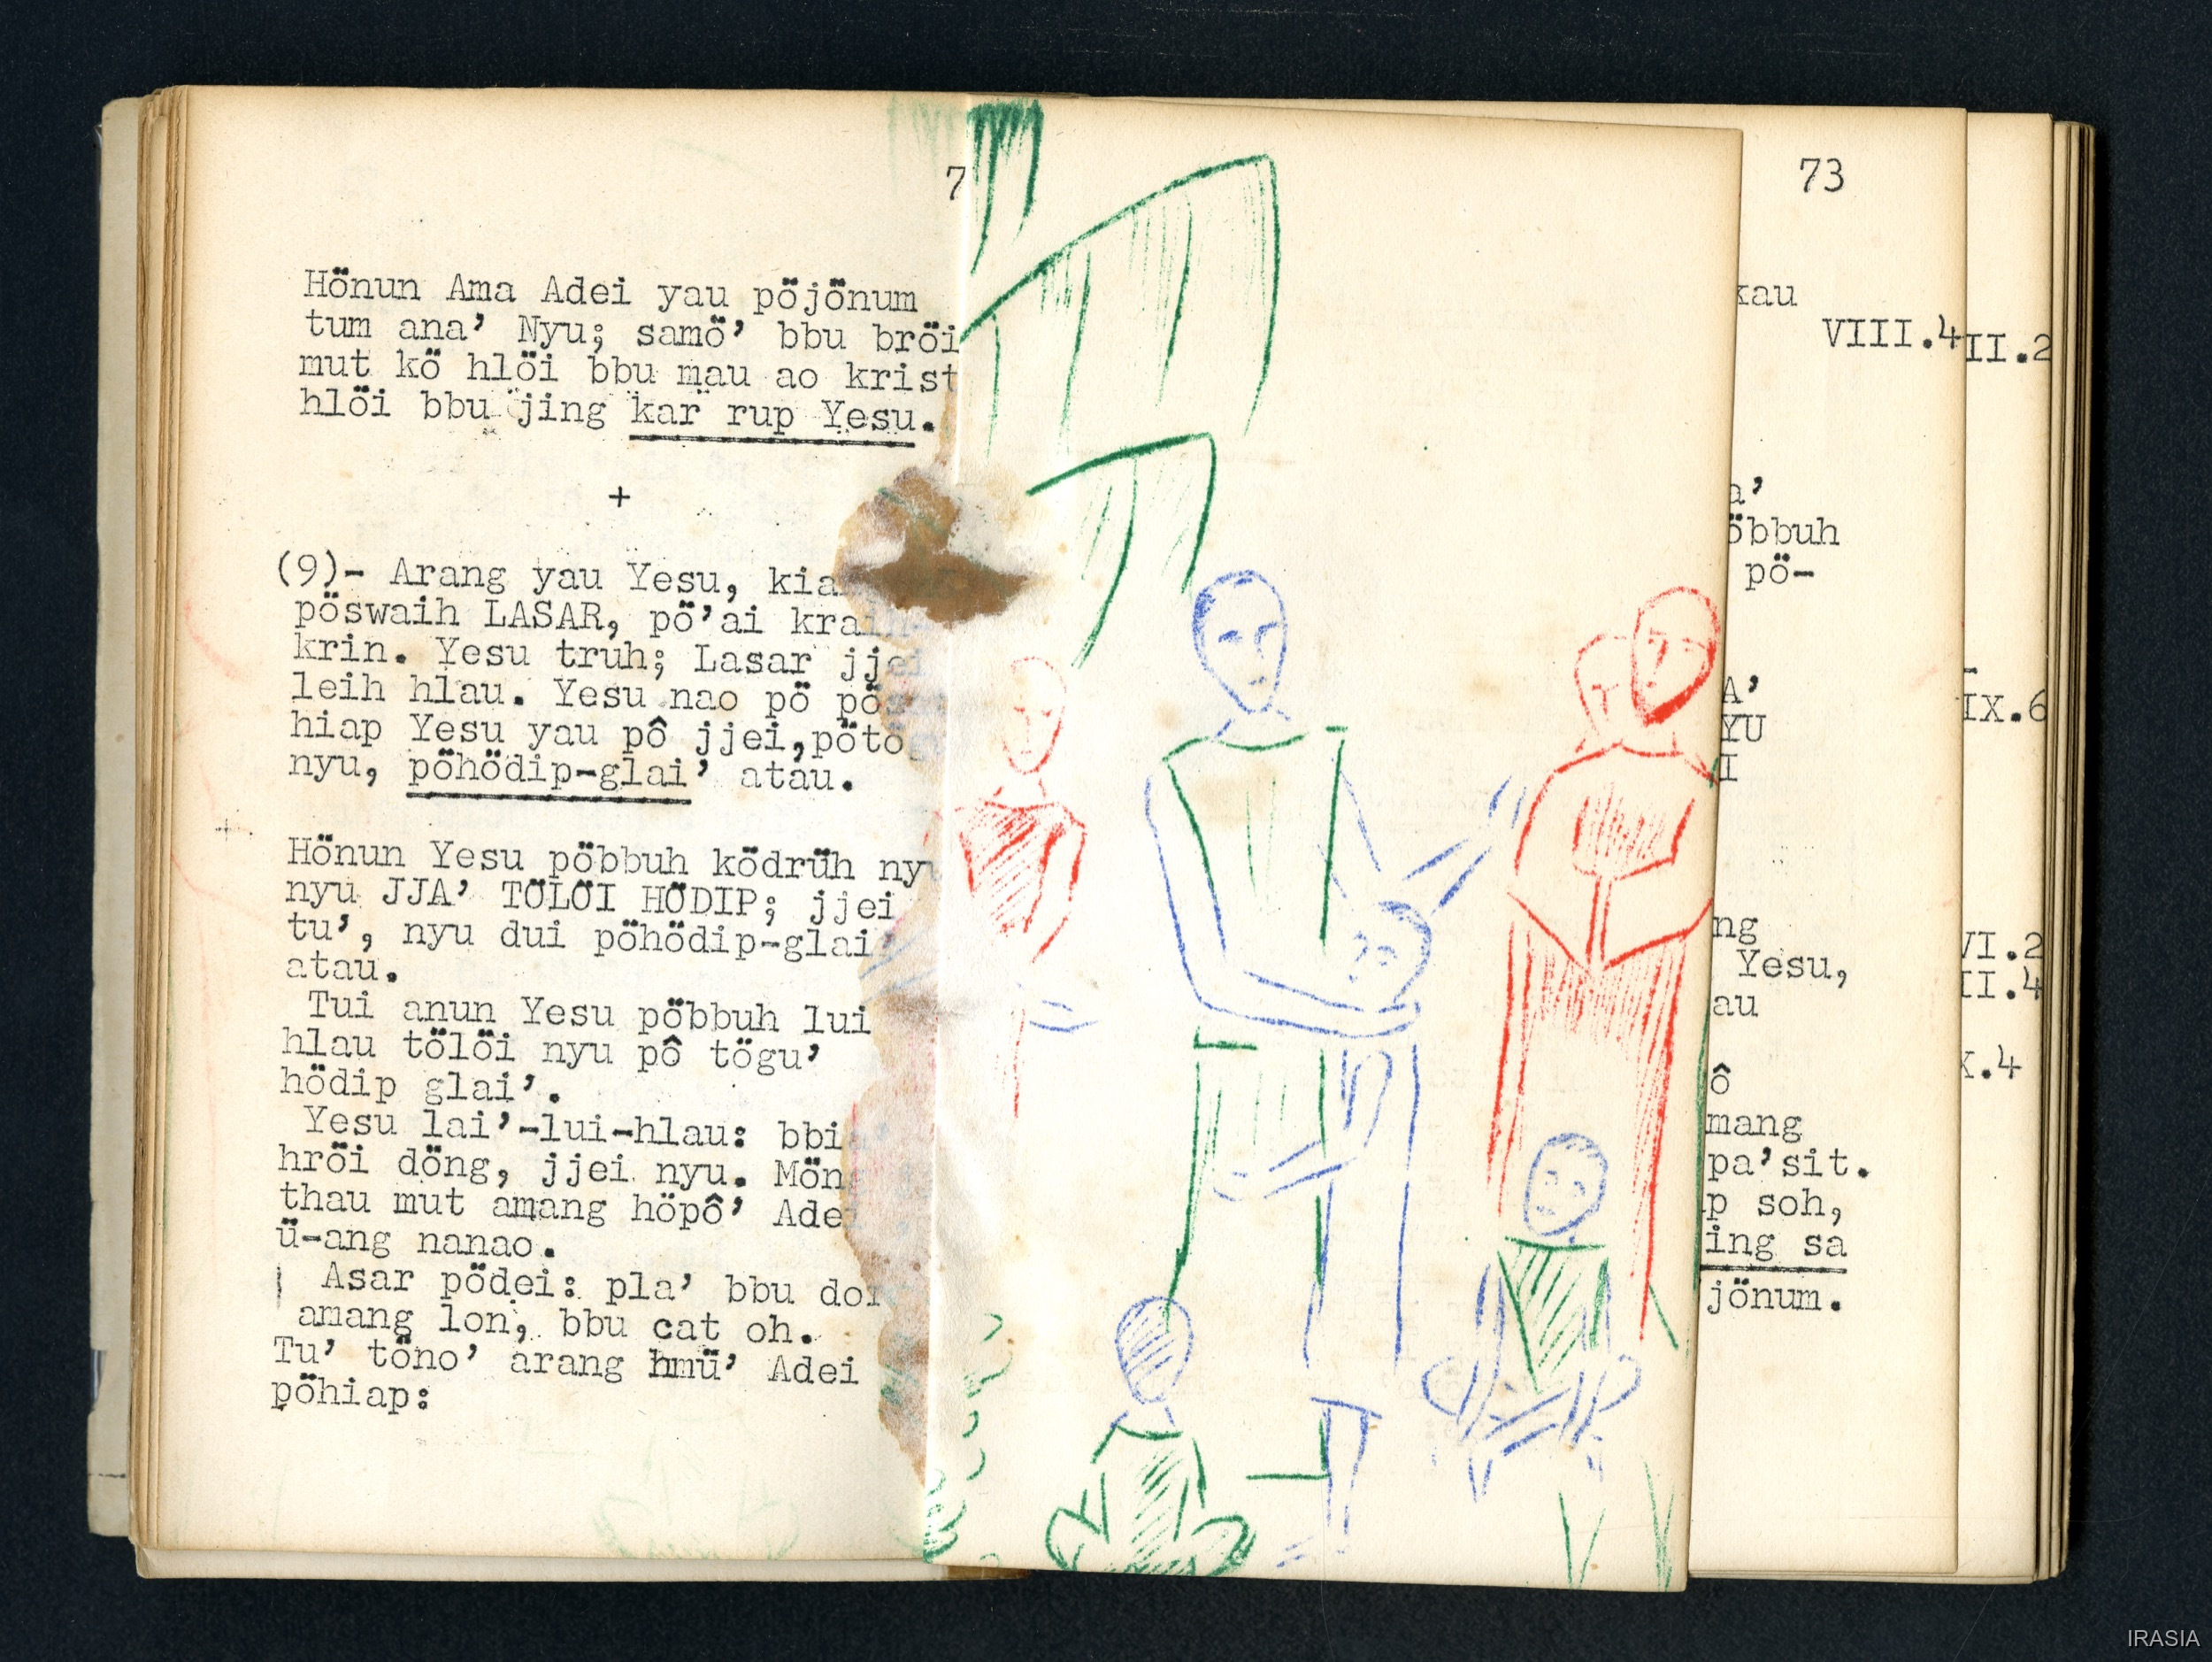 7
Hönun Ama Adei yau pöjönum
tum ana’ Nyu; samö’ bbu bröi
mut kö hlöi bbu mau ao krist
hlöi bbu jing kar rup Yesu.
+
(9)- Arang yau Yesu,
pöswaih LASAR, pö’ai
krin. Yesu truh; Lasar
leih hlau. Yesu nao pö
hiap Yesu yau pô jjei,pöto
nyu, pöhödip-glai’ atau.
Hönun Yesu pöbbuh ködrüh
nyu JJA’ TÖLÖI HÖDIP; jjei
tu’, nyu dui pöhödip-glai’
atau.
Tui anun Yesu pöbbuh lui
hlau tölöi nyu pô tögu’
hödip glai’.
Yesu lai’-lui-hlau:
hröi döng, jjei nyu.
thau mut amang höpô’
ü-ang nanao.
Asar pödei: pla’ bbu
amang lon, bbu cat oh.
Tu’ töno’ arang hmü’ Adei
pöhiap:
73
kau
VIII.4
a’
öbbuh
pö-
A’
YU
I
ng
Yesu,
au
ô
mang
pa’sit.
p soh,
ing sa
jönum.
II.2
IX.6
VI.2
II.4
X.4
IRASIA